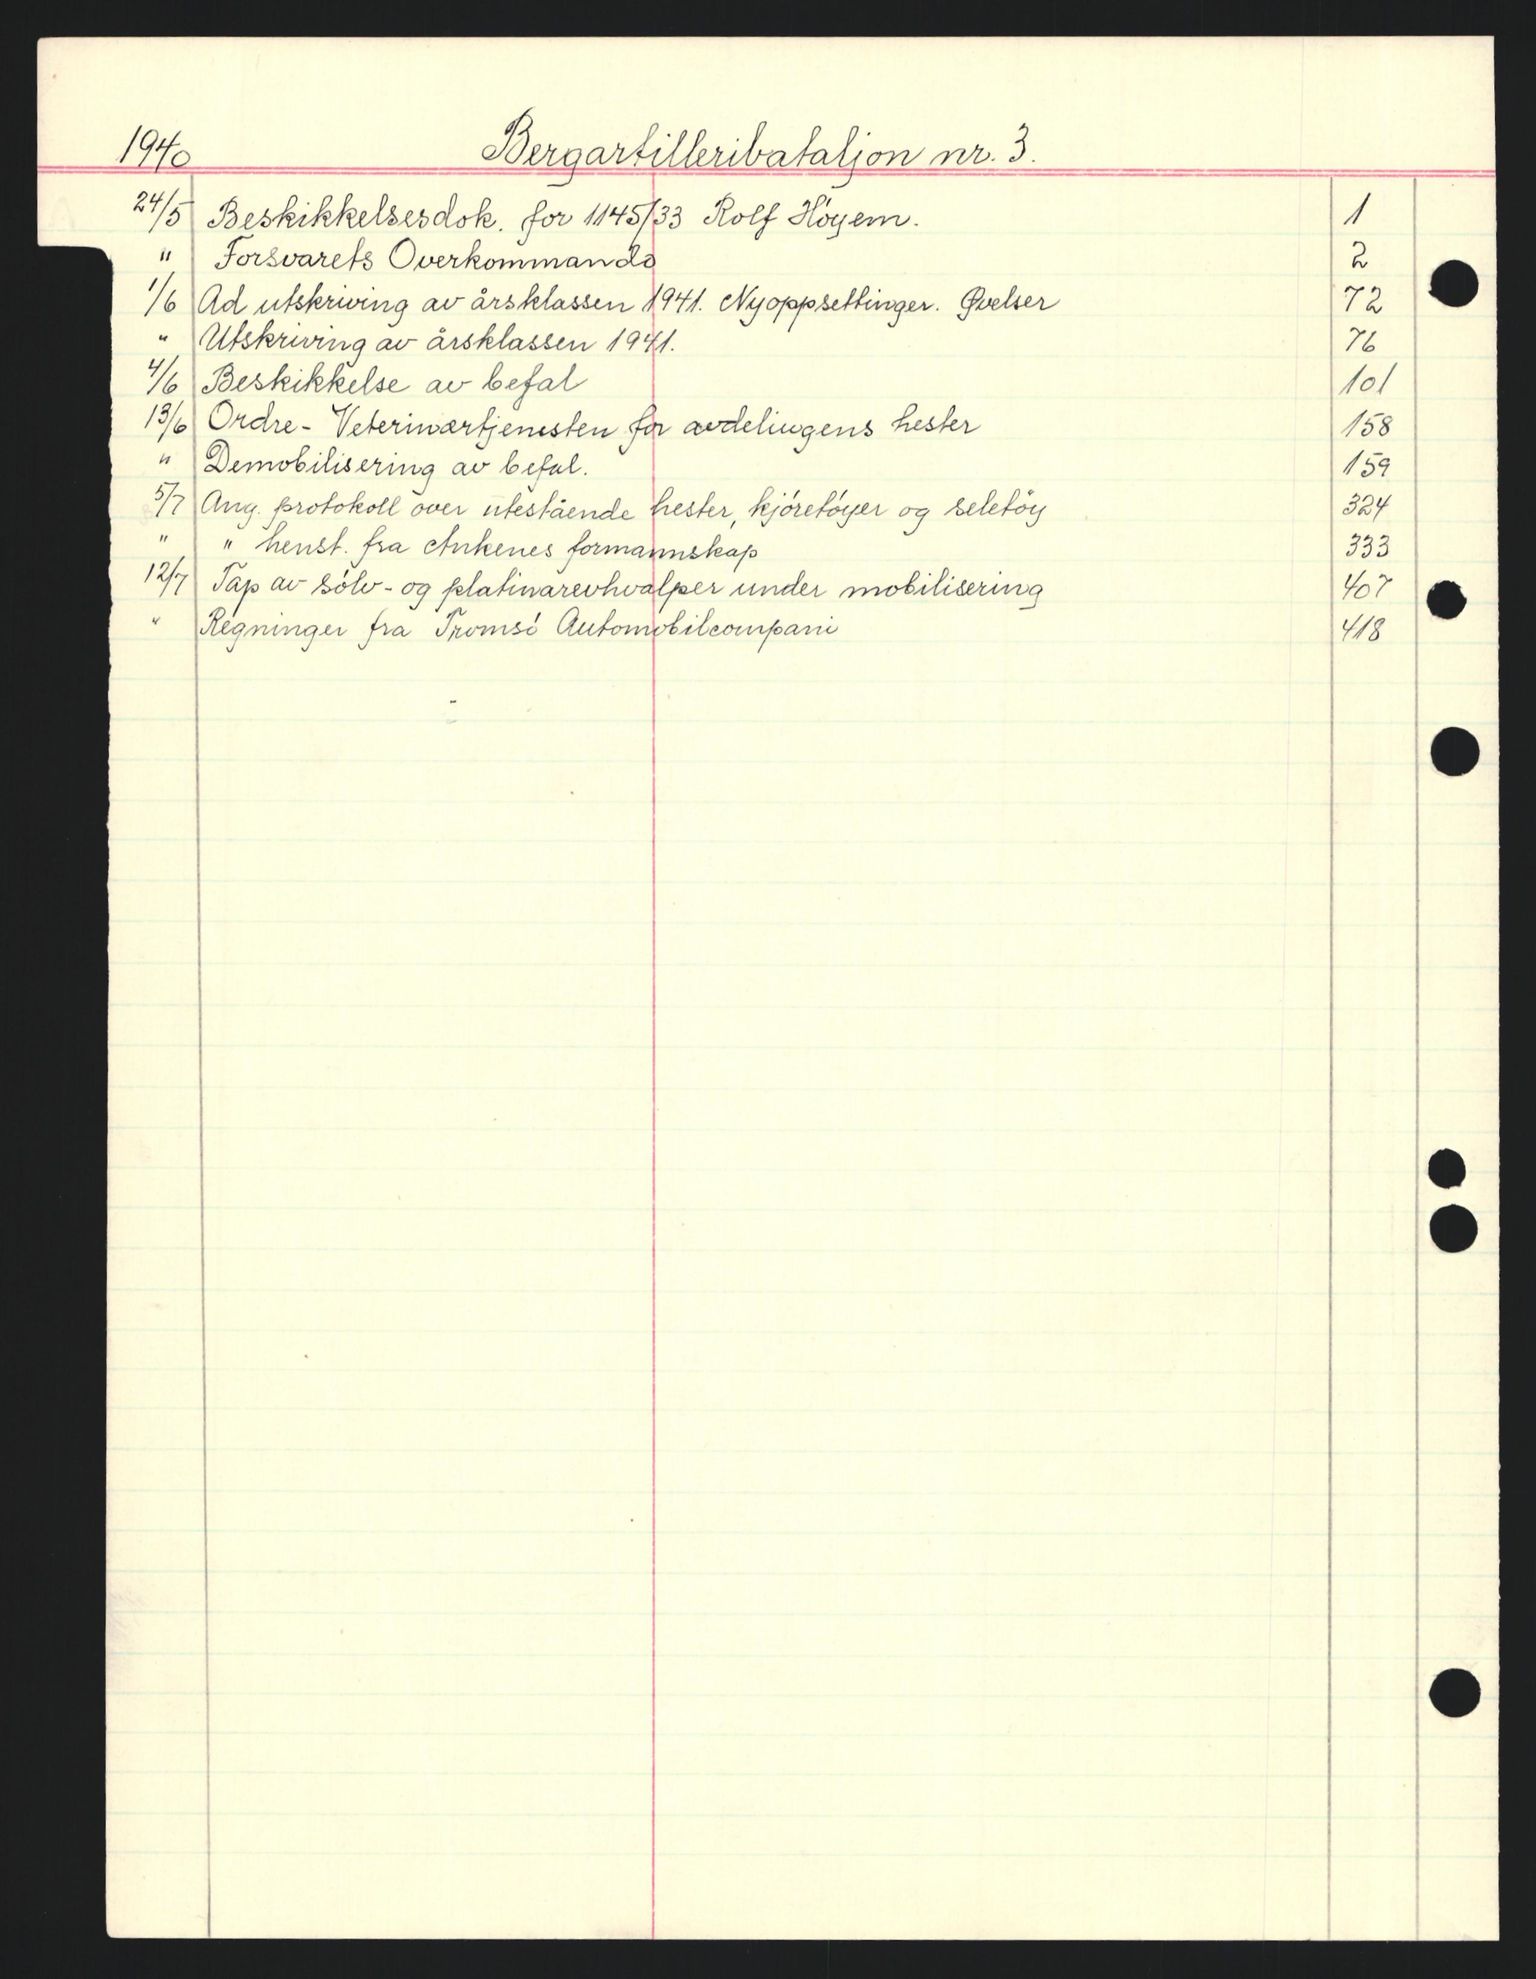 1940 Bergartilleribataljon nr. 3.
24/5 Beskikkelsesdok. for 1145/33 Rolf Höyem. 1
" Forsvarets Overkommando 2
1/6 Ad utskriving av årsklassen 1941. Nyoppsettinger. Øvelser 72
" Utskriving av årsklassen 1941. 76
4/6 Beskikkelse av befal 101
13/6 Ordre - Veterinærtjenesten for avdelingens hester 158
" Demobilisering av befal. 159
5/7 Ang. protokoll over utestående hester, kjöretöyer og seletöy 324
" " henst. fra Ankenes formannskap 333
12/7 Tap av sölv- og platinarevhvalper under mobilisering 407
" Regninger fra Tromsö Automobilcompani 418